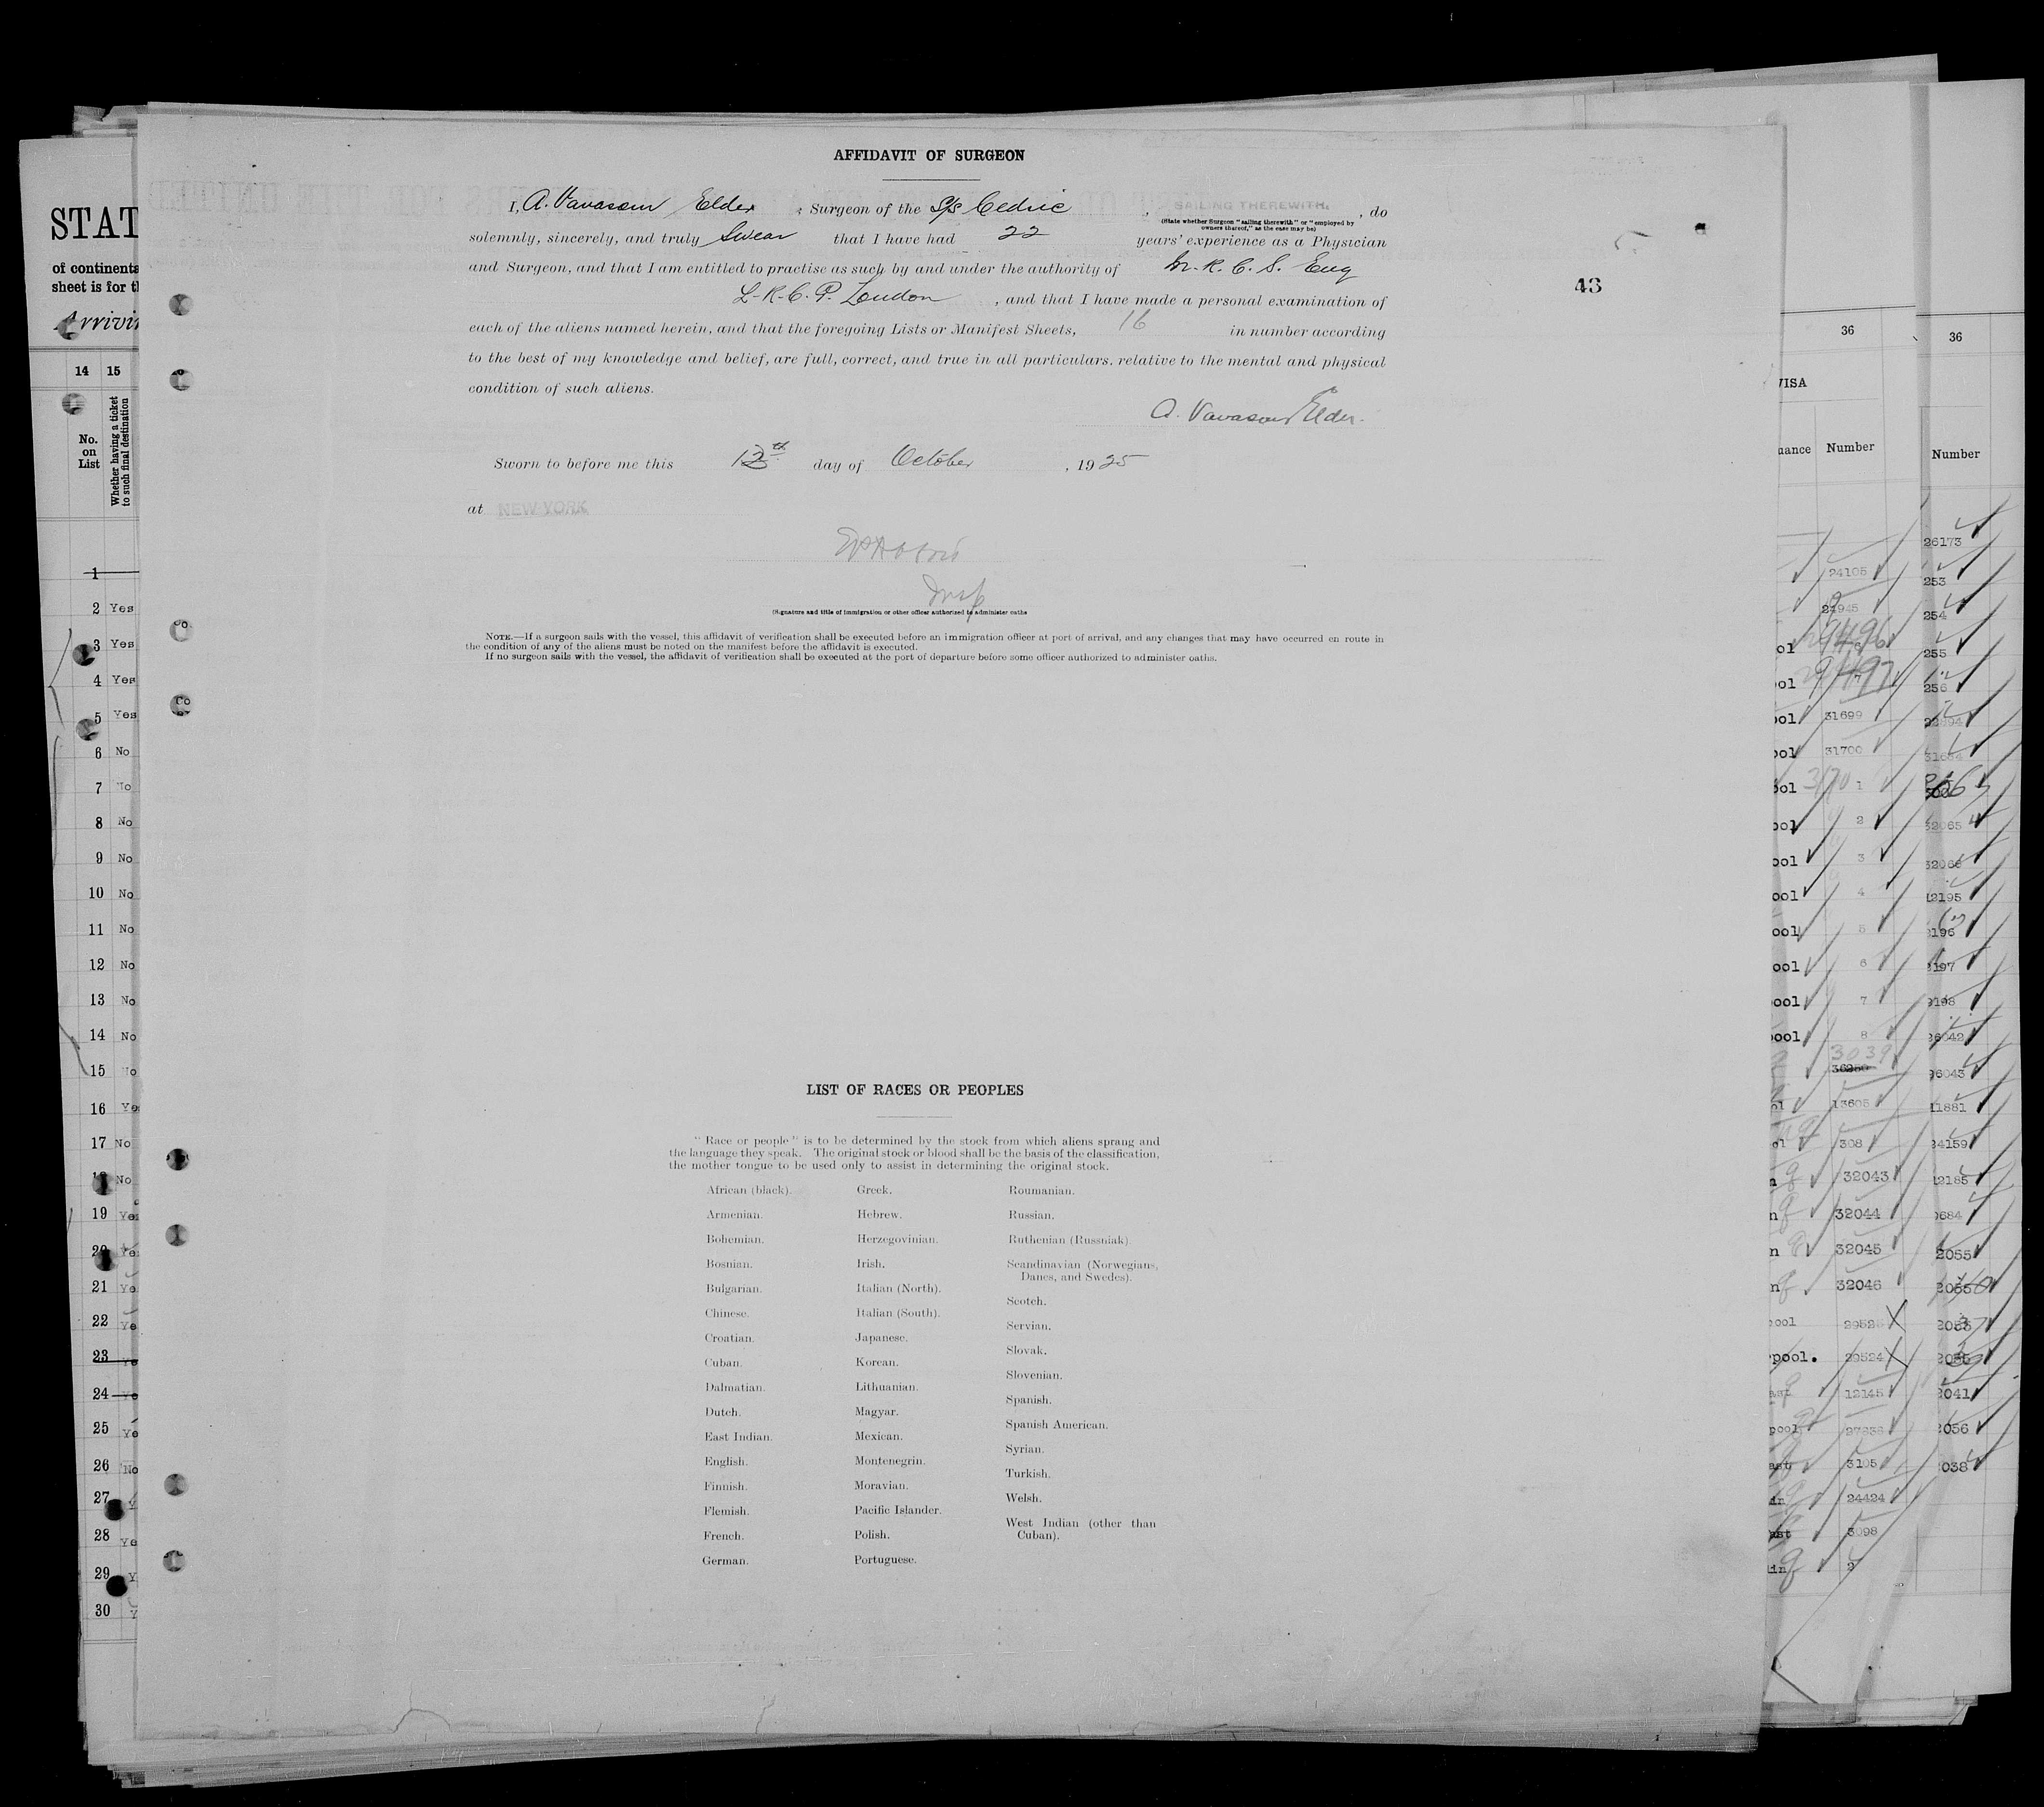 AFFIDAVIT OF SURGEON
I, A. Vavasour Elder, Surgeon of the S/S Cedric, SAILING THEREWITH, do
(State whether Surgeon "sailing therewith" or "employed by
owners thereof," as the case may be)
solemnly, sincerely, and truly Swear that I have had 22 years' experience as a Physician
and Surgeon, and that I am entitled to practise as such by and under the authority of M.R.C.S. Eng
L.R.C.P. London, and that I have made a personal examination of
each of the aliens named herein, and that the foregoing Lists or Manifest Sheets, 16 in number according
to the best of my knowledge and belief, are full, correct, and true in all particulars. relative to the mental and physical
condition of such aliens.
A. Vavasour Elder.
Sworn to before me this 12th day of October, 1925
at NEW YORK
Insp
(Signature and title of immigration or other officer authorized to administer oaths
NOTE.—If a surgeon sails with the vessel, this affidavit of verification shall be executed before an immigration officer at port of arrival, and any changes that may have occurred en route in
the condition of any of the aliens must be noted on the manifest before the affidavit is executed.
If no surgeon sails with the vessel, the affidavit of verification shall be executed at the port of departure before some officer authorized to administer oaths.
43
LIST OF RACES OR PEOPLES
"Race or people" is to be determined by the stock from which aliens sprang and
the language they speak. The original stock or blood shall be the basis of the classification,
the mother tongue to be used only to assist in determining the original stock.
African (black).
Armenian.
Bohemian.
Bosnian.
Bulgarian.
Chinese.
Croatian.
Cuban.
Dalmatian.
Dutch.
East Indian.
English.
Finnish.
Flemish.
French.
German.
Greek.
Hebrew.
Herzegovinian.
Irish.
Italian (North).
Italian (South).
Japanese.
Korean.
Lithuanian.
Magyar.
Mexican.
Montenegrin.
Moravian.
Pacific Islander.
Polish.
Portuguese.
Roumanian.
Russian.
Ruthenian (Russniak).
Scandinavian (Norwegians,
Danes, and Swedes).
Scotch.
Servian.
Slovak.
Slovenian.
Spanish.
Spanish American.
Syrian.
Turkish.
Welsh.
West Indian (other than
Cuban).
STAT
of continenta
sheet is for th
Arrivin
14 15
No.
on
List
Whether having a ticket
to such final destination
1
2 Yes
3 Yes
4 Yes
5 Yes
6 No
7 No
8 No
9 No
10 No
11 No
12 No
13 No
14 No
15 No
16 Yes
17 No
18 No
19 Yes
20 Ye
21 Ye
22 Ye
23 Ye
24 Ye
25 Ye
26 No
27 Y
28 Ye
29 Y
30 Y
36
VISA
uance Number
24105
24945
29496
29497
31699
31700
3170 1
2
3
4
5
6
7
8
3039
36250
13605
308
32043
32044
32045
32046
2952
29524
12145
3105
24424
3098
2
36
Number
26173
253
254
255
256
32065
32066
12195
2196
2197
2198
26042
96043
11881
24159
12185
0684
2055
2041
2056
2038